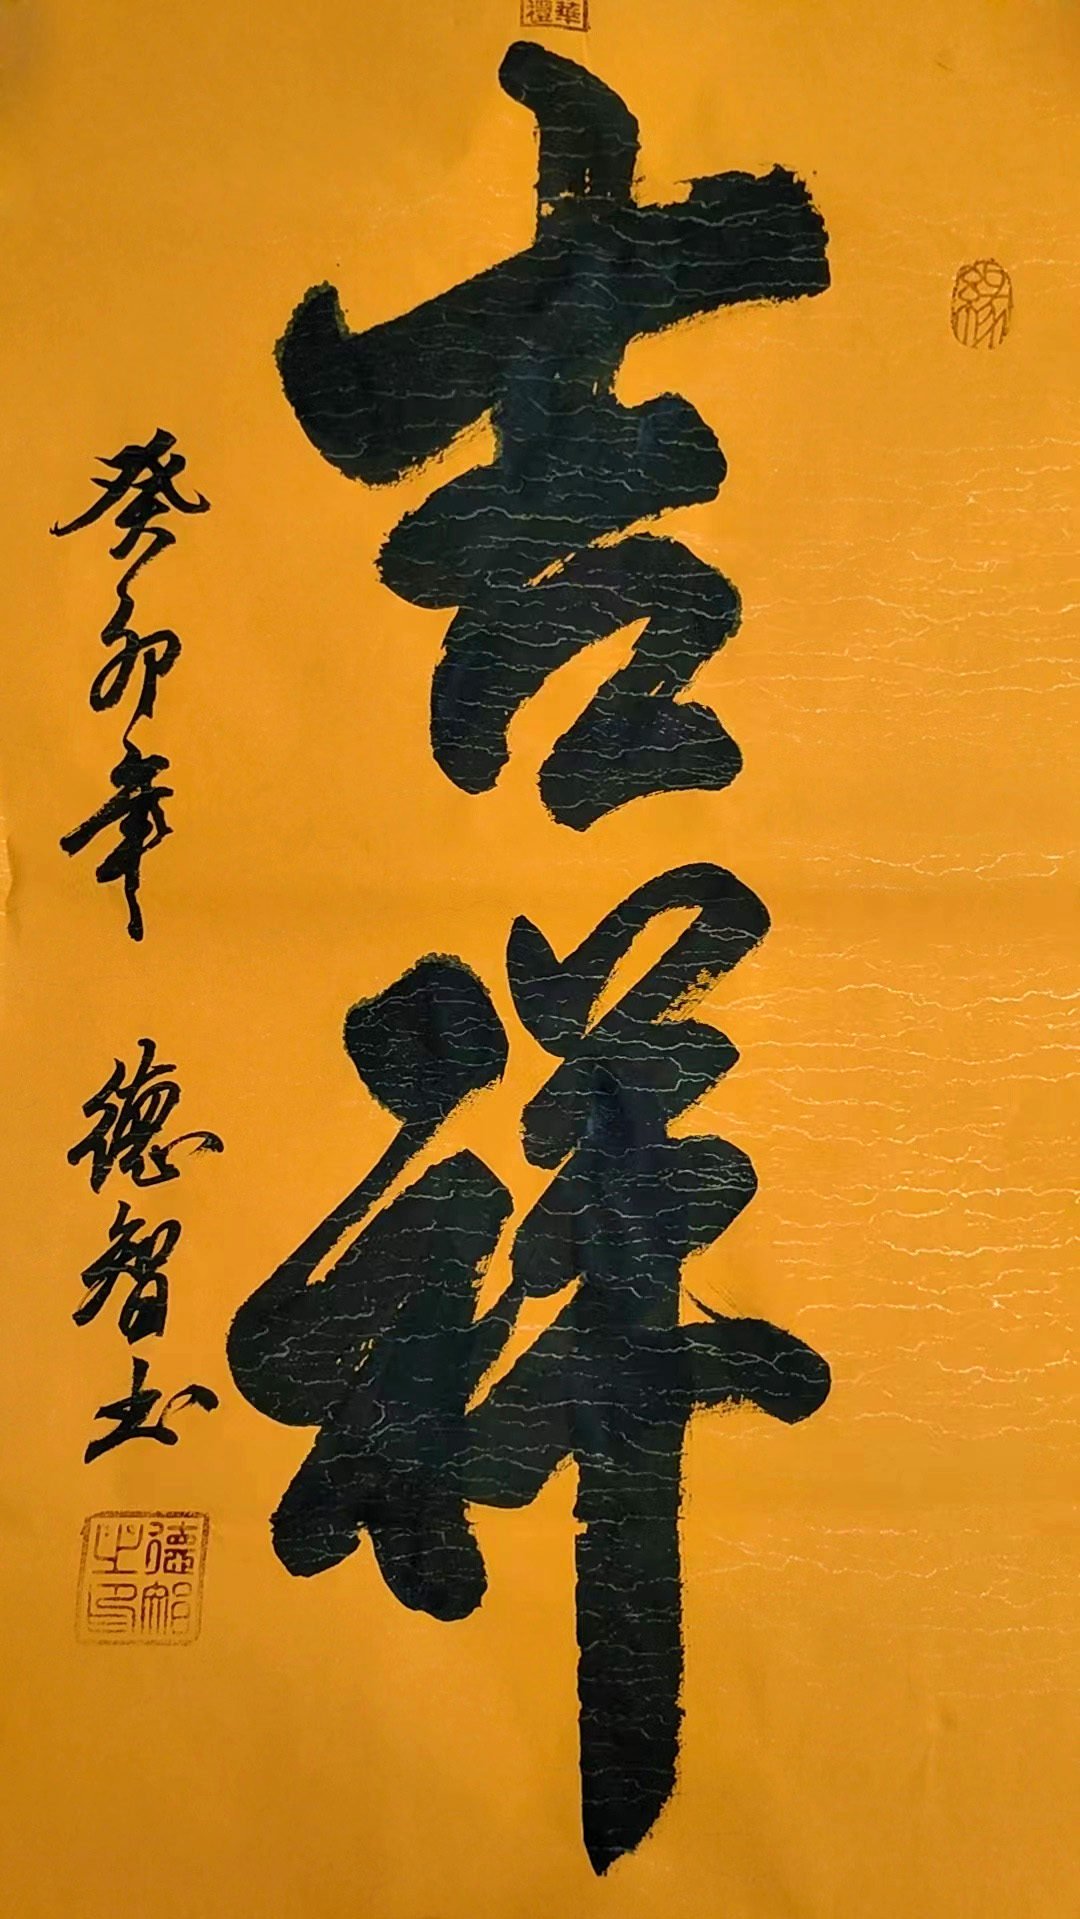 吉祥
癸卯年 德智书
緣
德智之印